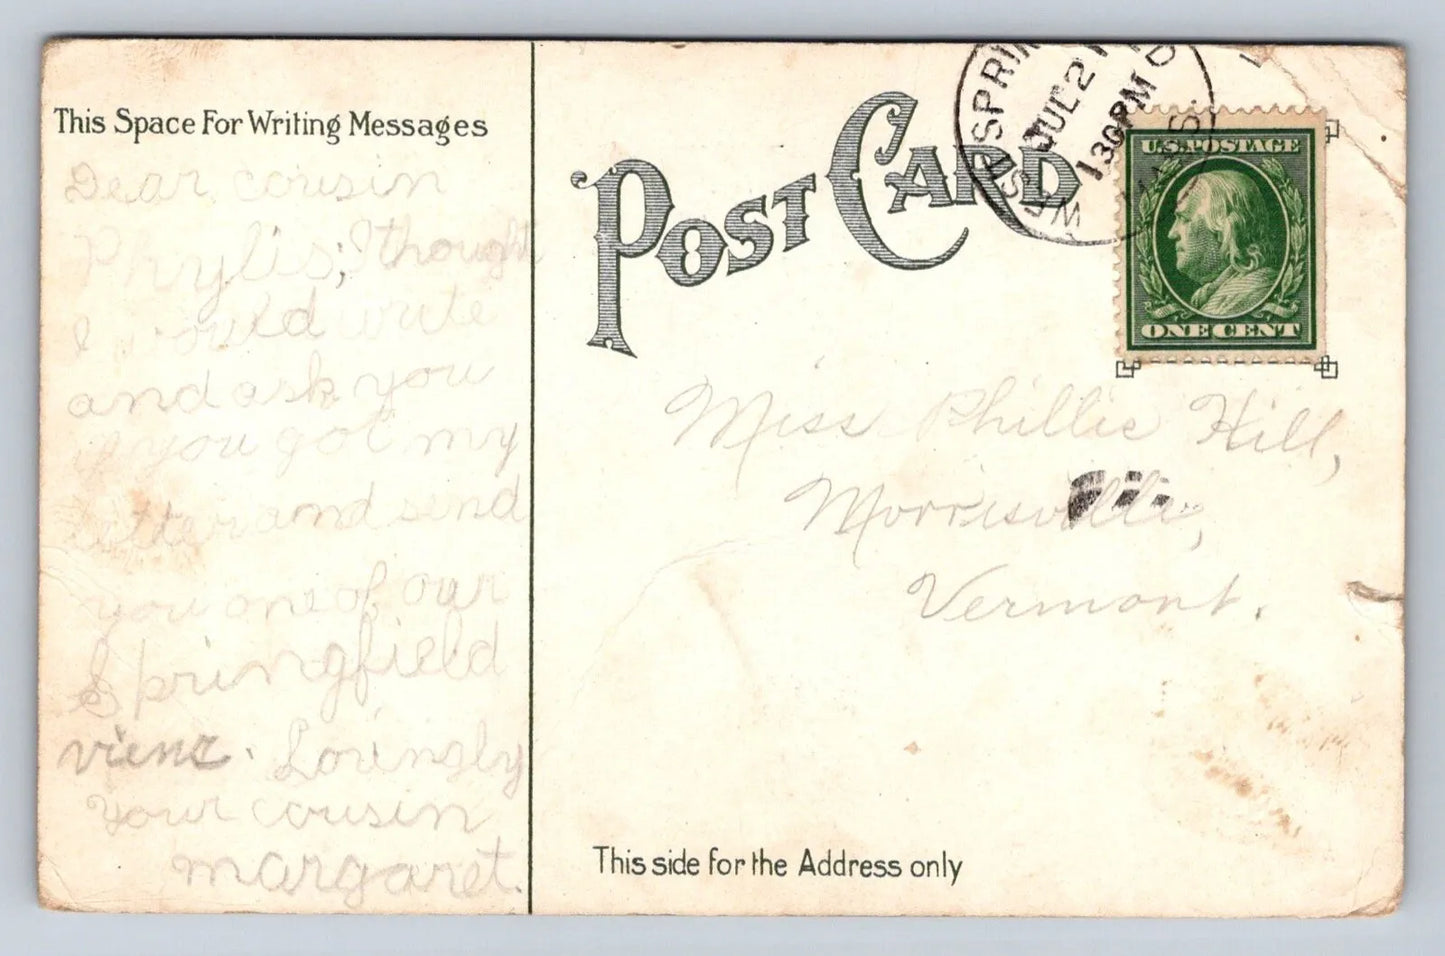 This Space For Writing Messages
Dear cousin
Phylis; I thought
I would write
and ask you
if you got my
letter and send
you one of our
Springfield
viens. Lovingly
your cousin
margaret.
POST CARD
WEST SPRIN
JUL 21
130PM
U.S. POSTAGE
ONE CENT
Miss Phillis Hill,
Morrisville,
Vermont.
This side for the Address only